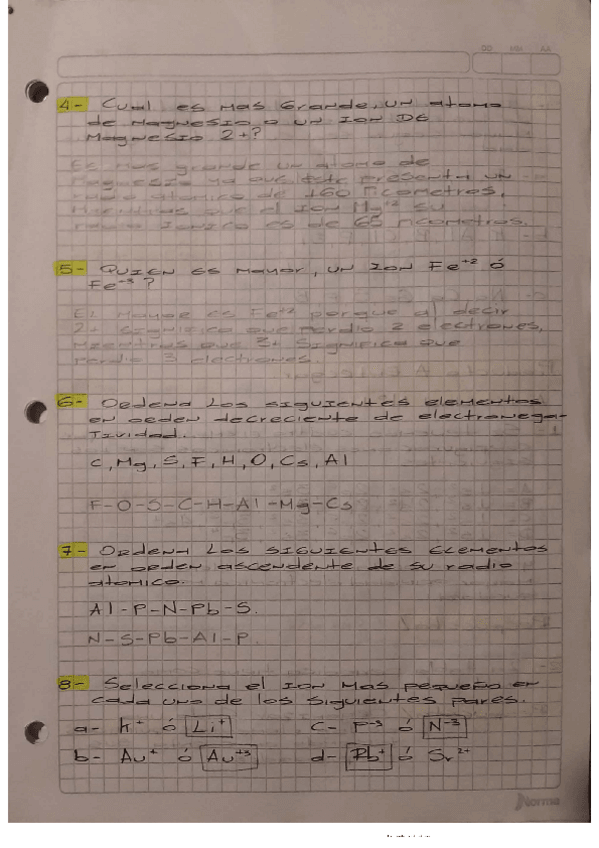 DD MM AA
4- Cual es mas Grande, un atomo
de magnesio o un Ion DE
Magnesio 2+?
Es mas grande un atomo de
magnesio ya que este presenta un
radio atomico de 160 Picometros,
mientras que el Ion Mg+2 su
radio Ionico es de 65 Picometros.
5- Quien es mayor, un Ion Fe+2 ó
Fe-3?
El Mayor es Fe+2 porque al decir
2+ significa que perdio 2 electrones,
mientras que 3+ significa que
perdio 3 electrones.
6- Ordena los siguientes elementos
en orden decreciente de electronega-
tividad.
C, Mg, S, F, H, O, Cs, Al
F-O-S-C-H-Al-Mg-Cs
7- Ordena los siguientes elementos
en orden ascendente de su radio
atomico.
Al-P-N-Pb-S.
N-S-Pb-Al-P
8- Selecciona el Ion mas pequeño en
cada uno de los siguientes pares.
a- K+ ó Li+ C- P-3 ó N-3
b- Au+ ó Au+3 d- Rb+ ó Sr2+
Norma